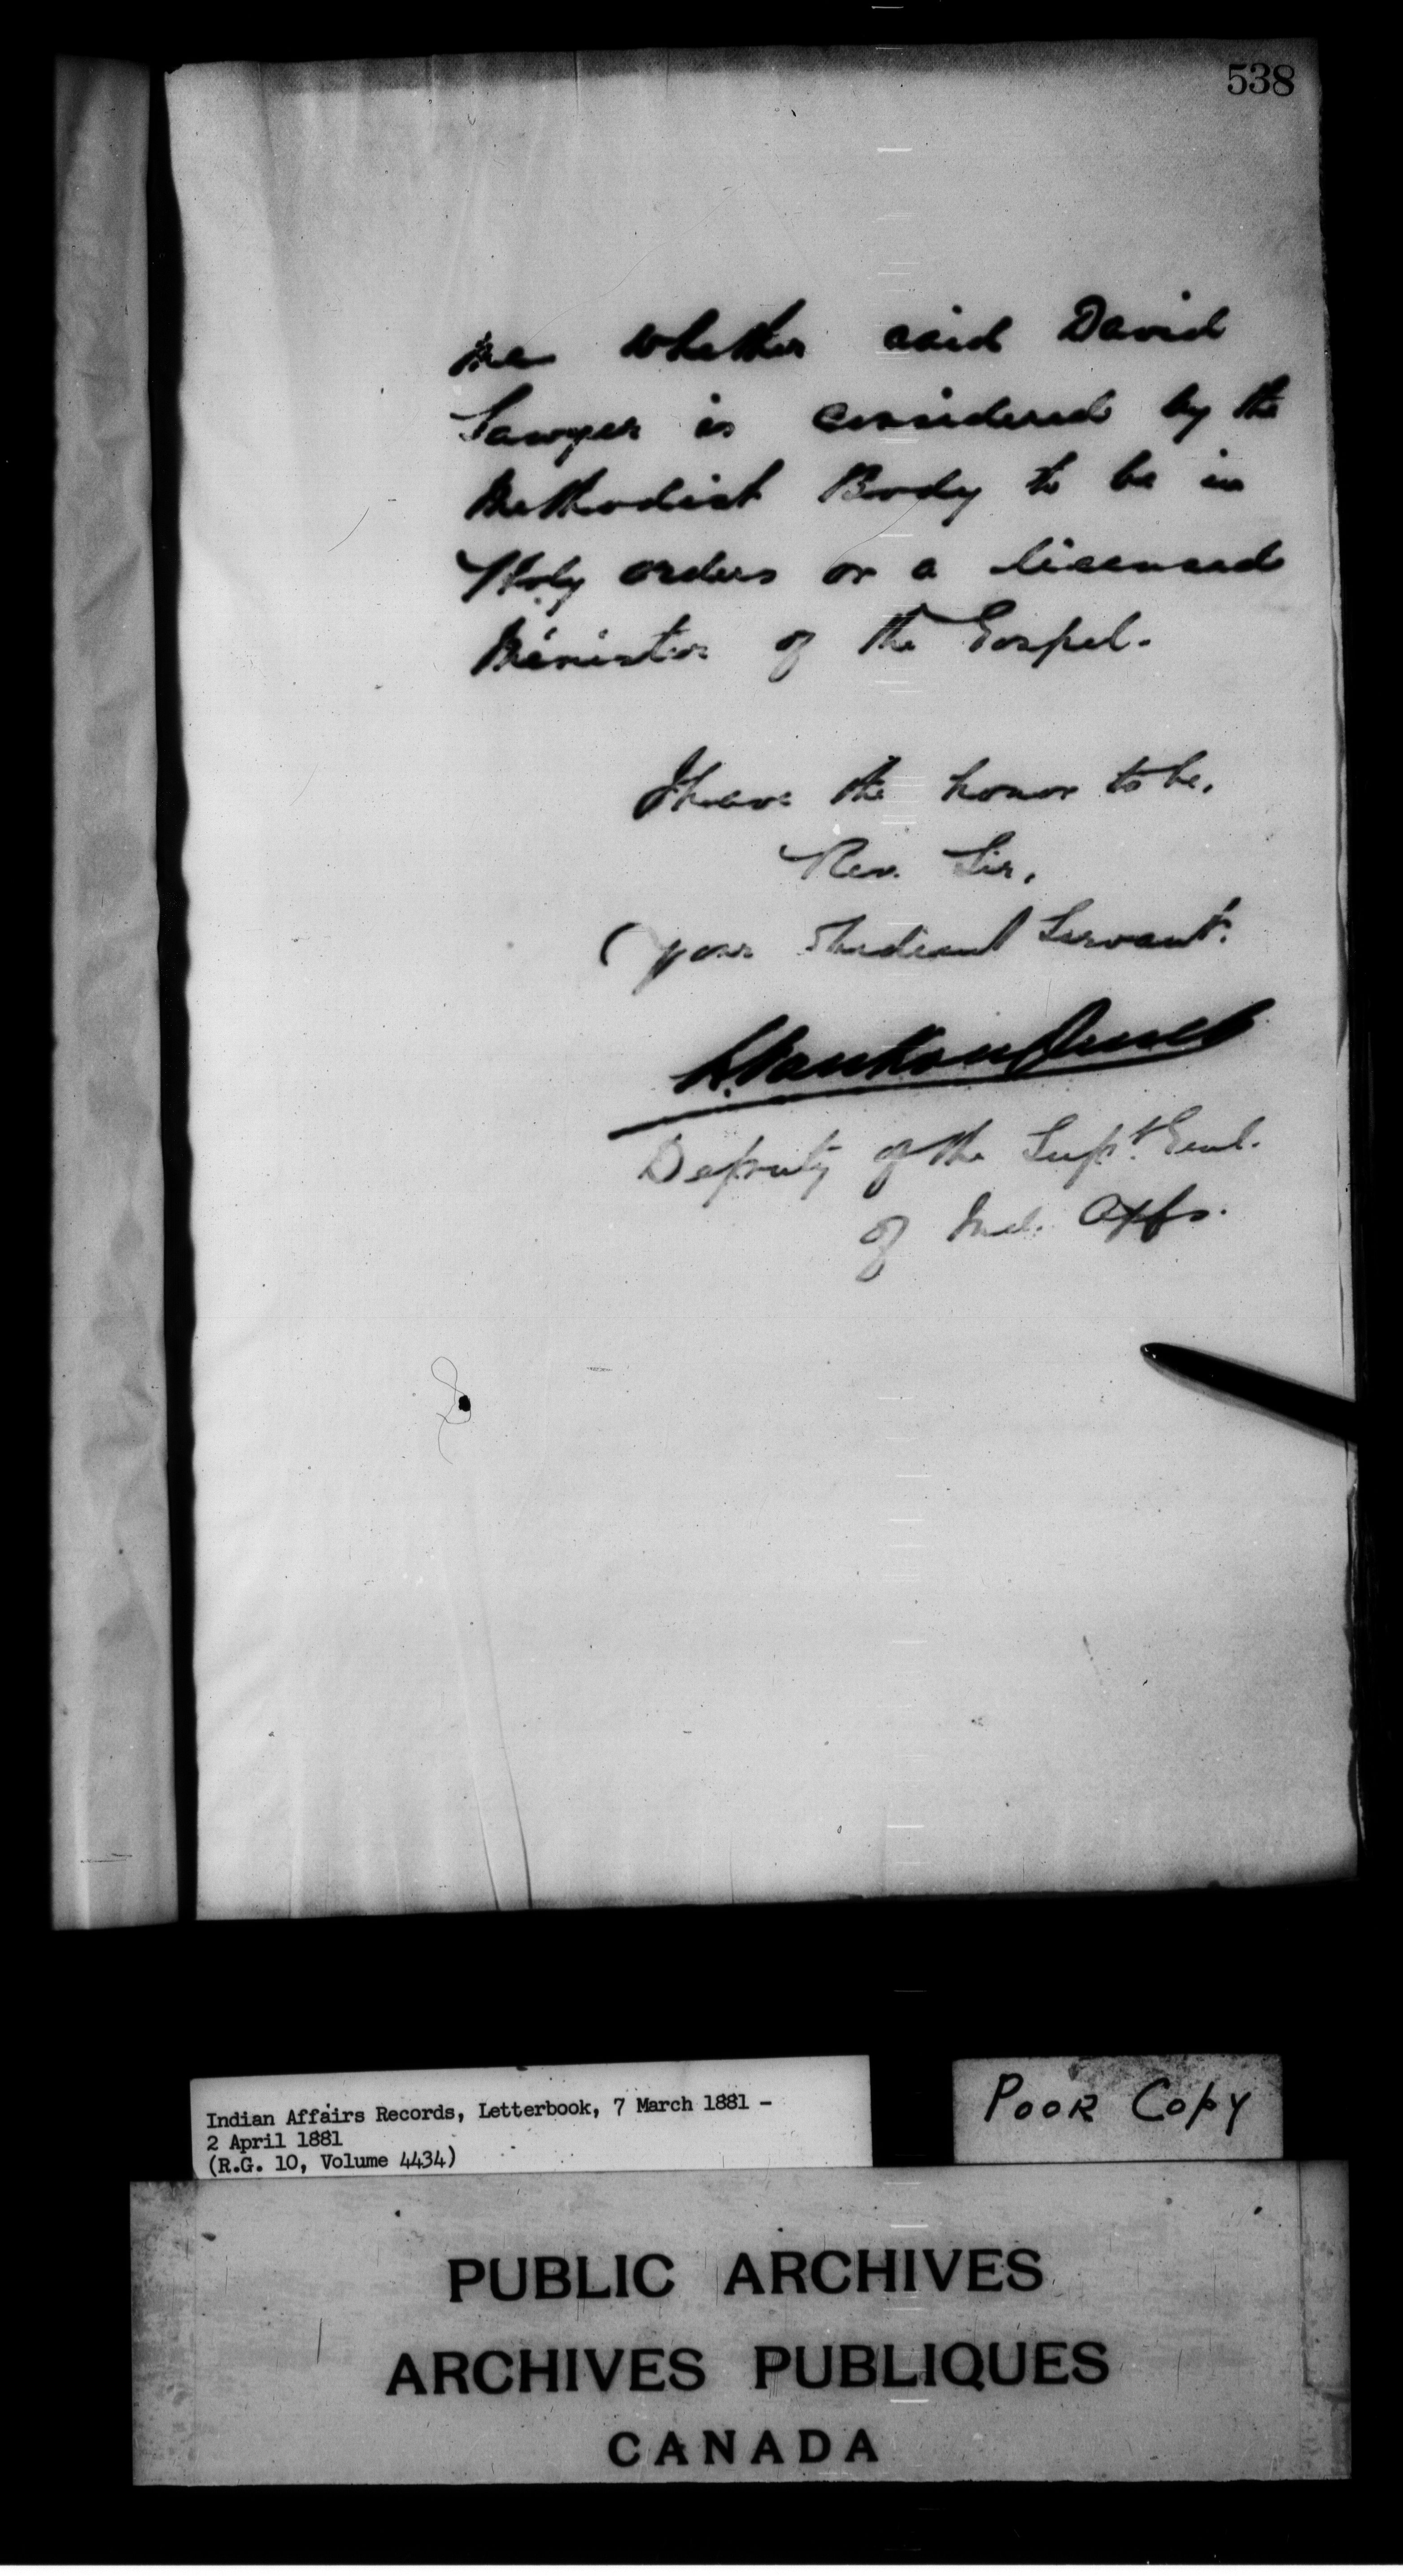 538
me whether said David
Sawyer is considered by the
Methodist Body to be in
Holy orders or a licensed
Minister of the Gospel.
I have the honor to be,
Rev. Sir,
your obedient Servant.
L. Vankoughnet
Deputy of the Supt. Genl.
of Ind. Affs.
Indian Affairs Records, Letterbook, 7 March 1881 -
2 April 1881
(R.G. 10, Volume 4434)
POOR COPY
PUBLIC ARCHIVES
ARCHIVES PUBLIQUES
CANADA